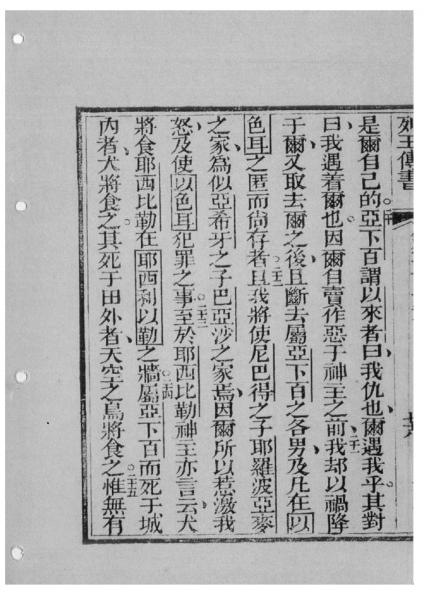 列王傳書
是爾自己的亞下百謂以來者曰我仇也爾遇我乎其對
曰我遇着爾也因爾自賣作惡于神主之前我却以禍降
于爾又取去爾之後且斷去屬亞下百之各男及凡在以
色耳之匿而尙存者且我將使尼巴得之子耶羅波亞麥
之家為似亞希牙之子巴亞沙之家焉因爾所以惹激我
怒及使以色耳犯罪之事至於耶西比勒神主亦言云犬
將食耶西比勒在耶西利以勒之牆屬亞下百而死于城
內者犬將食之其死于田外者天空之鳥將食之惟無有